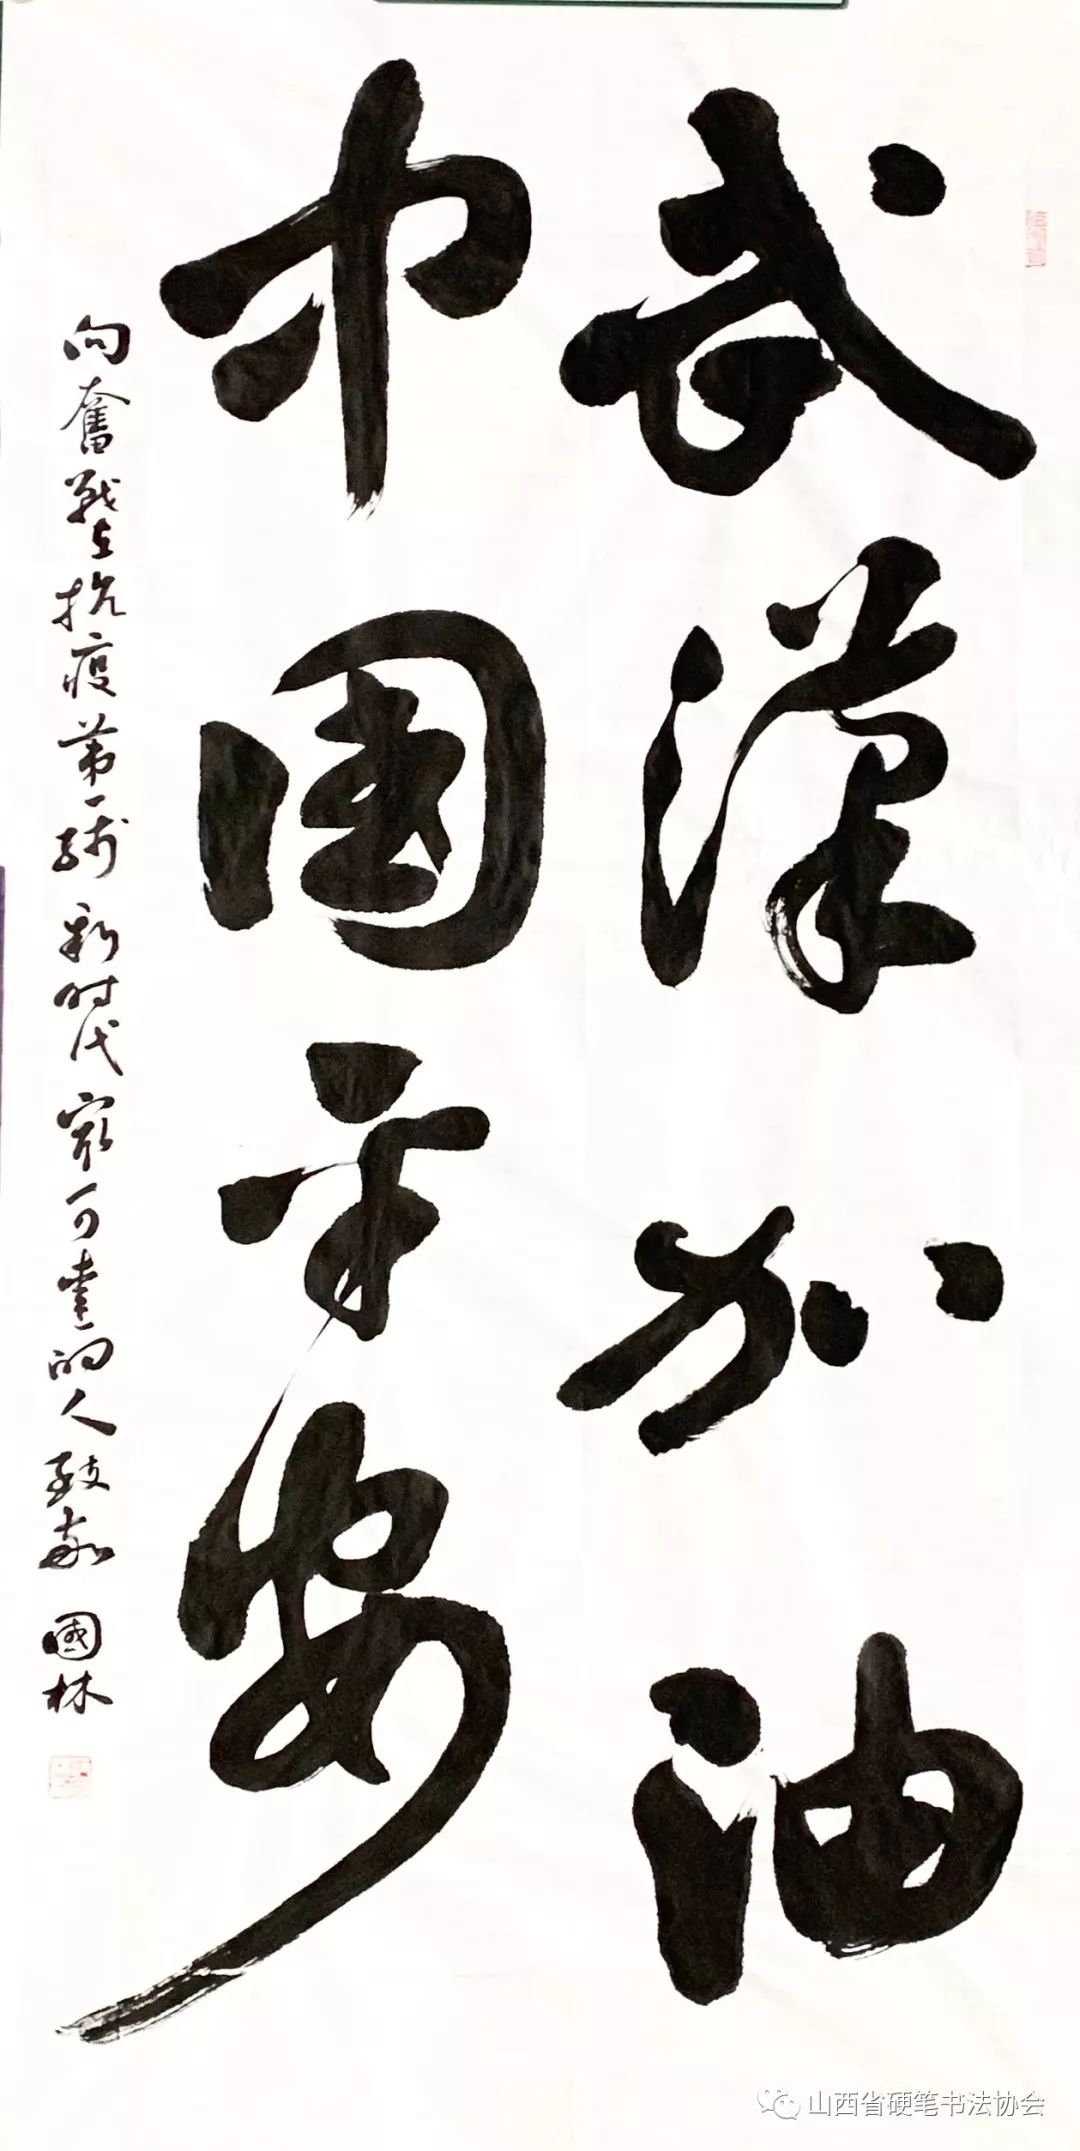 武漢加油
中國平安
向奮戰在抗疫第一线新时代最可爱的人致敬 國林
山西省硬笔书法协会